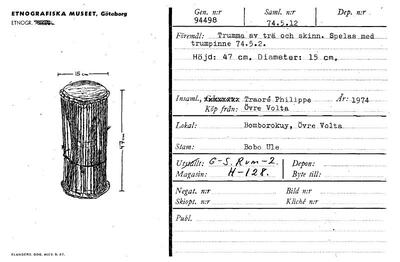 ETNOGRAFISKA MUSEET, Göteborg
ETNOGR.
15 cm
47 cm
Gen. n:r
94498
Saml. n:r
74.5.12
Dep. n:r
Föremål: Trumma av trä och skinn. Spelas med
trumpinne 74.5.2.
Höjd: 47 cm. Diameter: 15 cm.
Insaml., Traoré Philippe År: 1974
Köp från: Övre Volta
Lokal: Bomborokuy, Övre Volta
Stam: Bobo Ule
Utställt: G-S. Rum-2. Depon:
Magasin: H-128. Byte till:
Negat. n:r Bild n:r
Skiopt. n:r Kliché n:r
Publ.